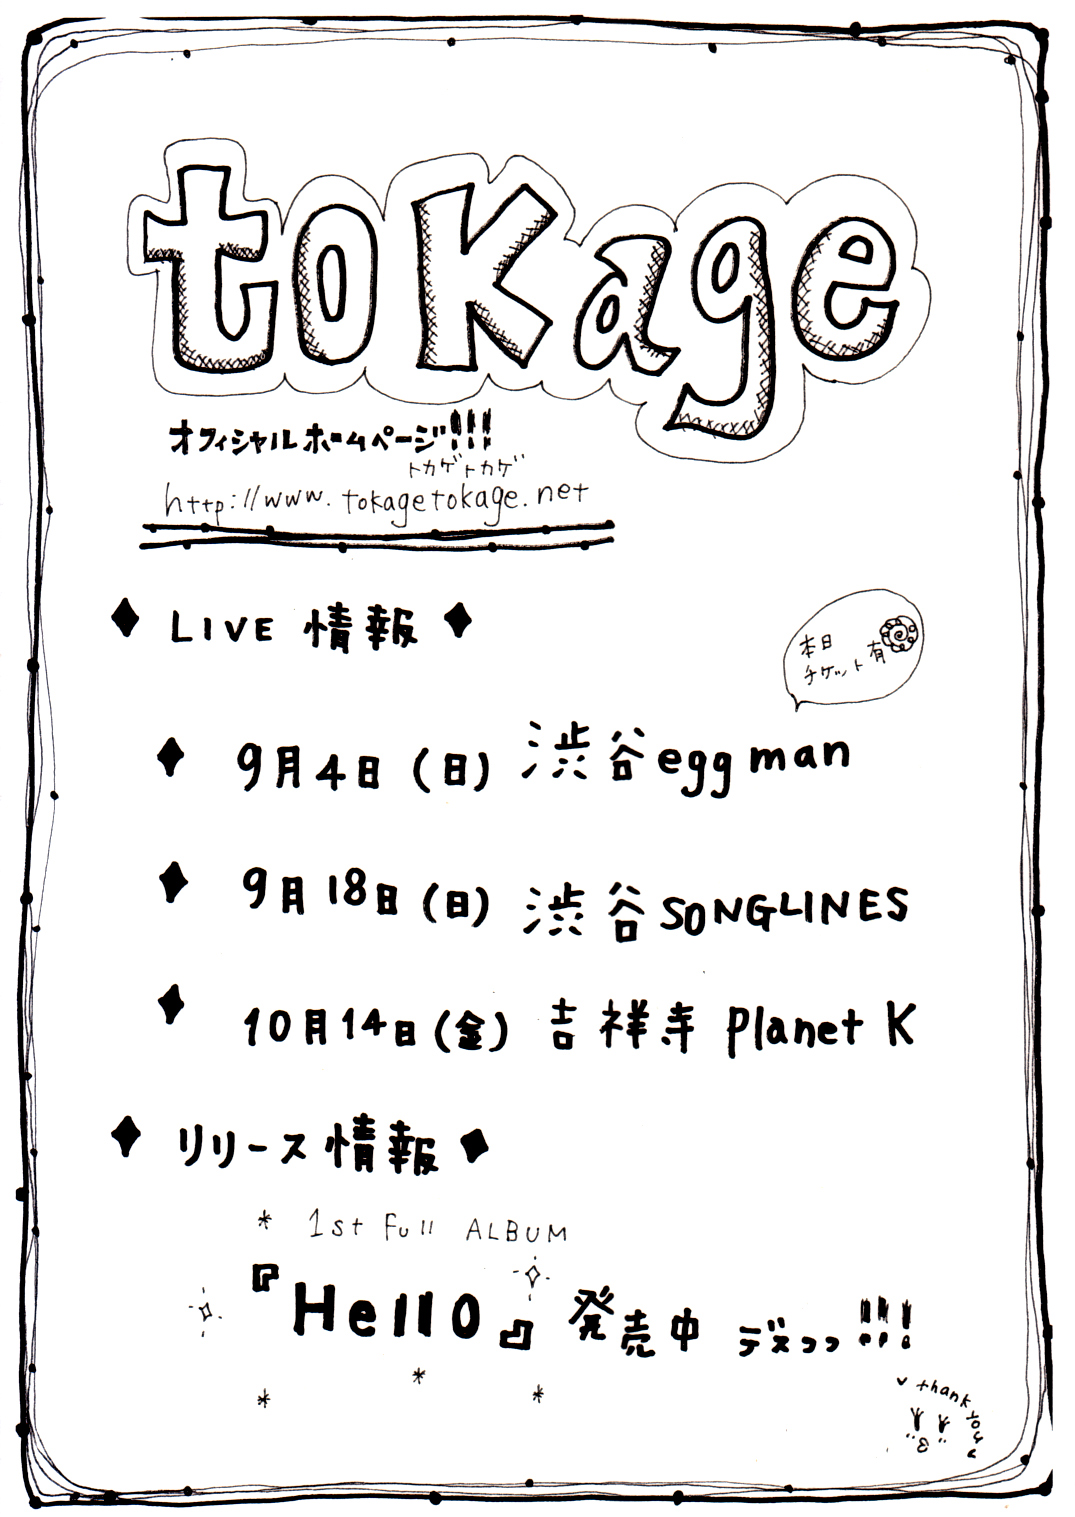 toKage
オフィシャルホームページ!!!
トカゲトカゲ
http://www.tokagetokage.net
◆ LIVE 情報 ◆
本日
チケット有
◆ 9月4日(日) 渋谷eggman
◆ 9月18日(日) 渋谷SONGLINES
◆ 10月14日(金) 吉祥寺 Planet K
◆ リリース情報 ◆
* 1st Full ALBUM
『Hello』発売中 デスっっ!!!
thank you